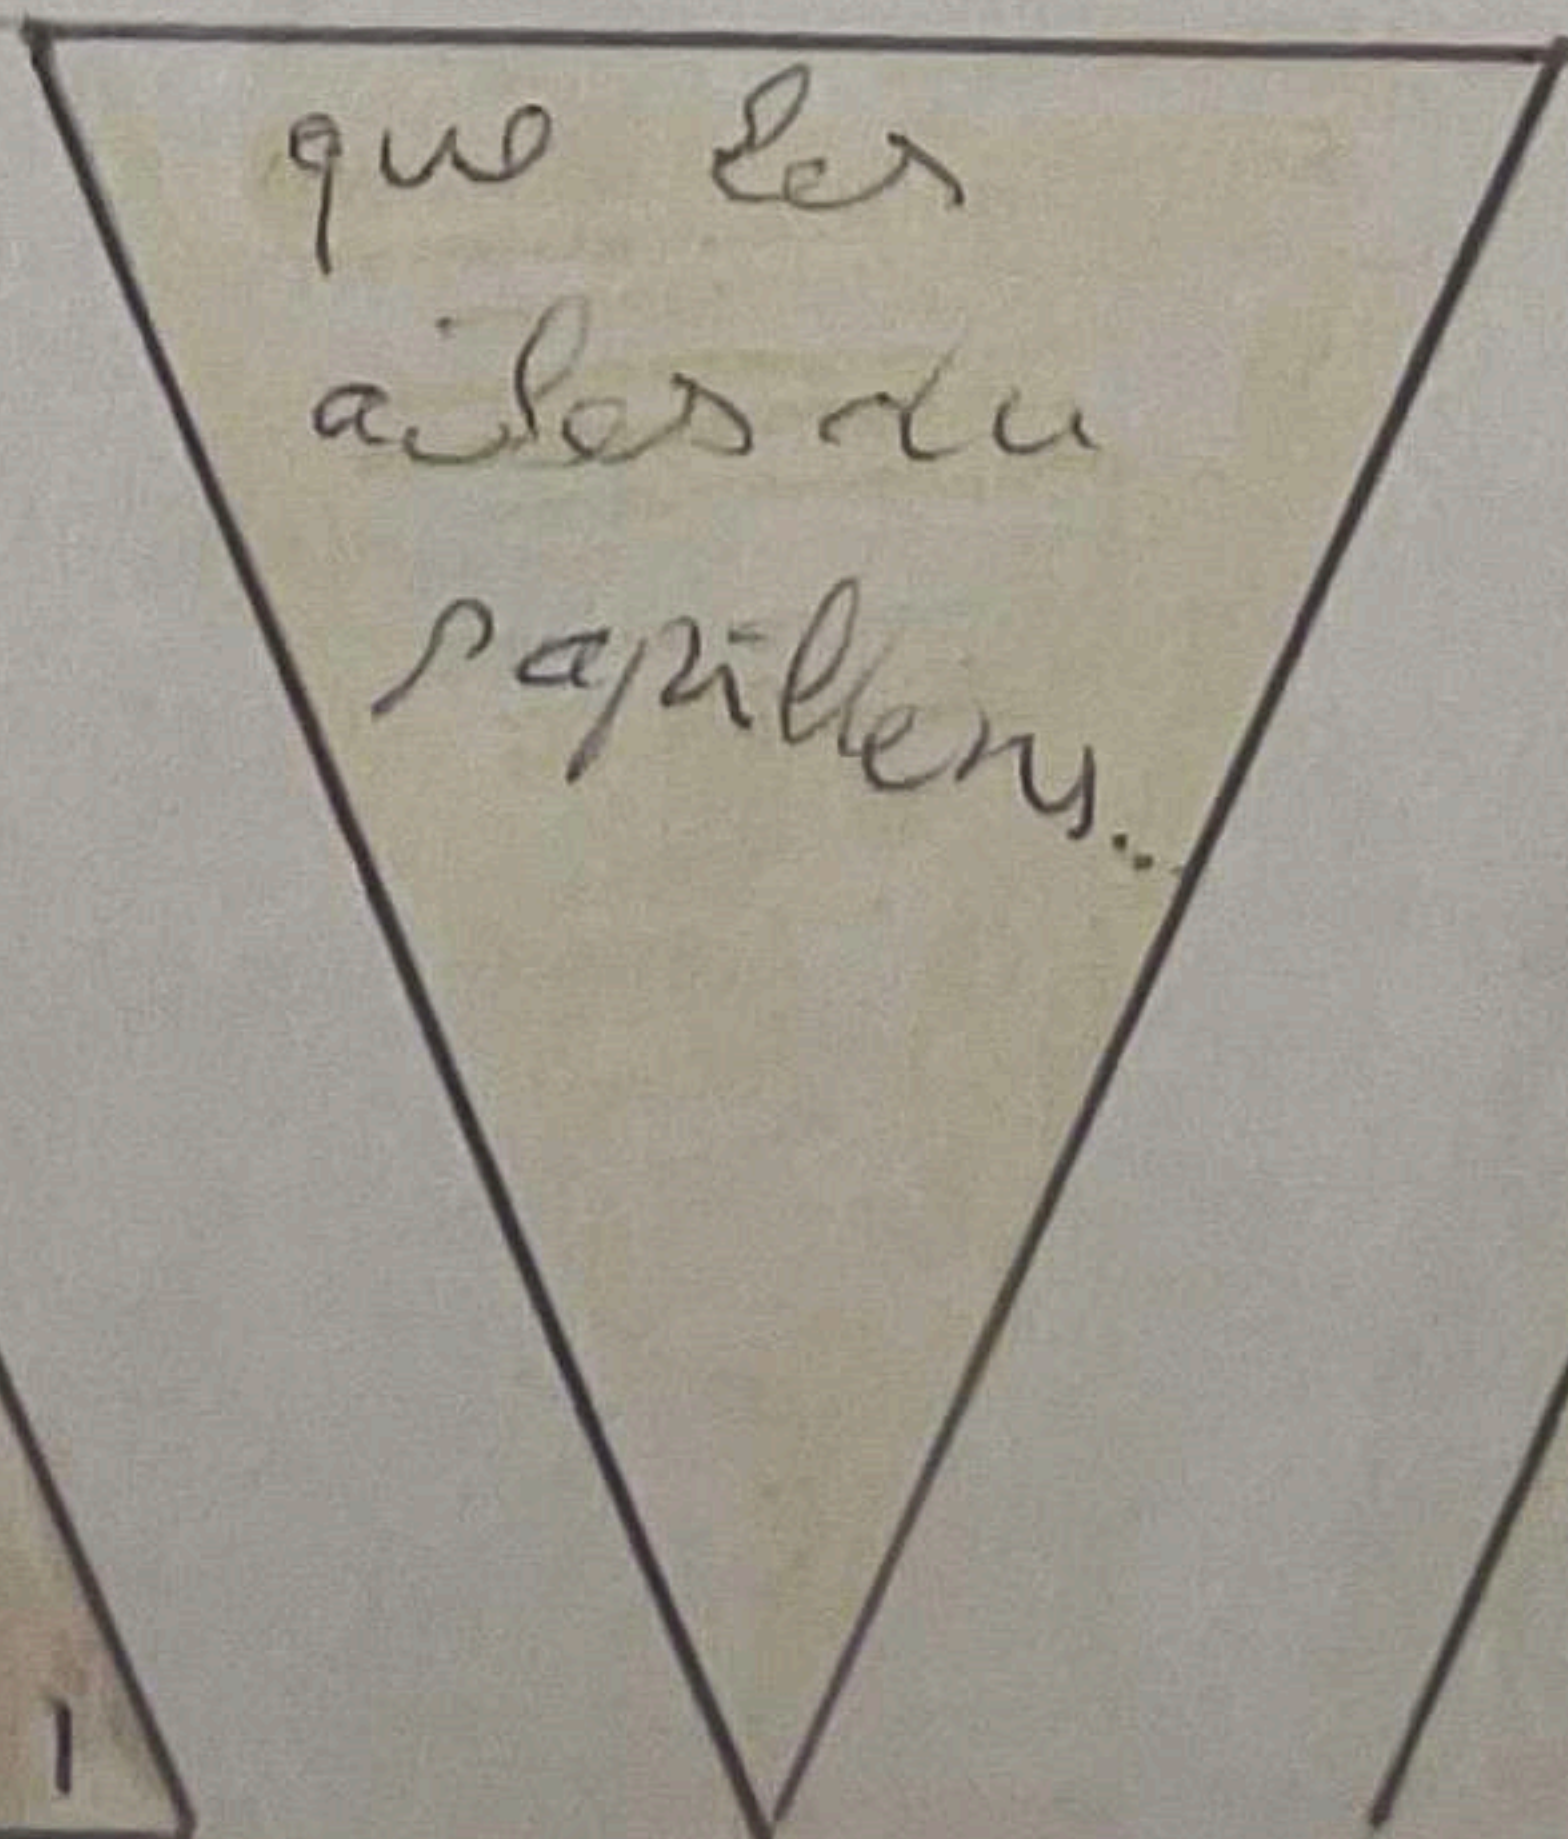 que les
ailes du
papillons...
1